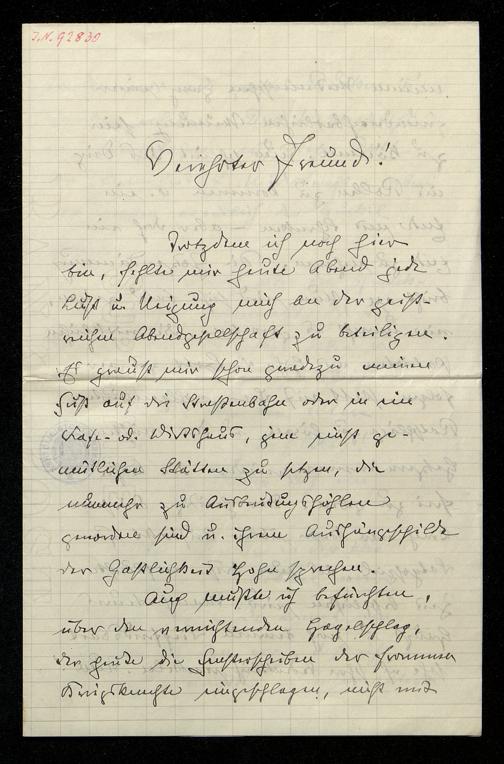 I.N. 92830
Verehrter Freund!
Trotzdem ich noch hier
bin, fehlte mir heute Abend jede
Lust u. Neigung mich an der geist-
reichen Abendgesellschaft zu beteiligen.
Es graust mir schon geradezu meinen
Fuß auf die Straßenbahn oder in ein
Kafe- od. Wirtshaus, jene nicht ge-
mütlichen Stätten zu setzen, die
nunmehr zu Ausbeutungshöhlen
geworden sind u. ihrem Aushängeschilde
der Gastlichkeit Hohn sprechen.
Auch müßte ich befürchten,
über den vernichtenden Hagelschlag,
der heute die Fensterscheiben der frommen
Kriegsknechte eingeschlagen, nicht mit